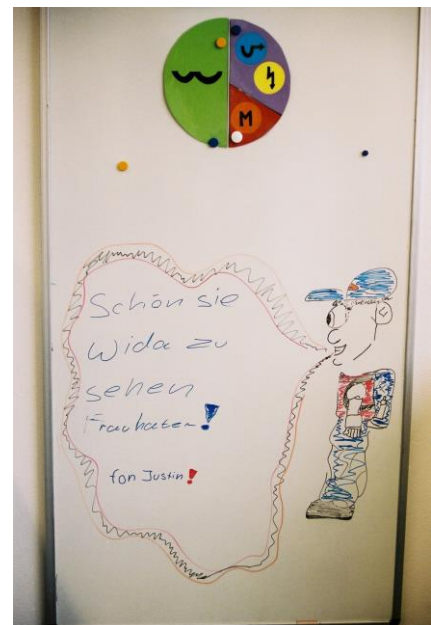 M
Schön sie
Wida zu
sehen
Frau
fon Justin!